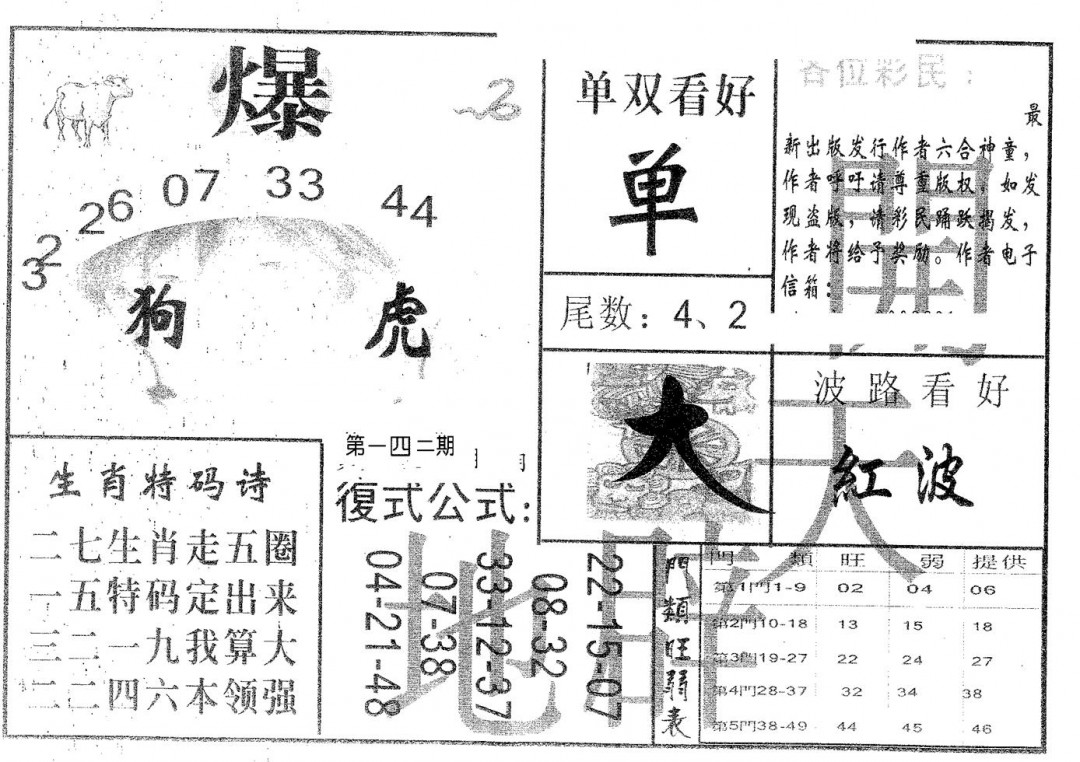 爆
32
26
07
33
44
狗
虎
单双看好
单
尾数：4、2
各位彩民：
最
新出版发行作者六合神童，
作者呼吁请尊重版权。如发
现盗版，请彩民踊跃揭发，
作者将给予奖励。作者电子
信箱：
大
波路看好
紅波
生肖特码诗
二七生肖走五圈
一五特码定出来
三二一九我算大
二二四六本领强
第一四二期
復式公式：
04-21-48
07-38
33-12-37
08-32
22-15-07
門類旺弱表
門類 旺 弱 提供
第1門1-9 02 04 06
第2門10-18 13 15 18
第3門19-27 22 24 27
第4門28-37 32 34 38
第5門38-49 44 45 46